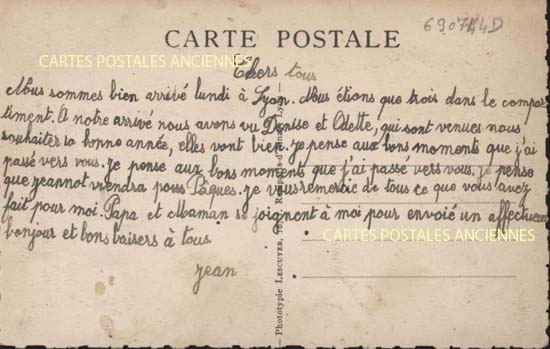 6907A4D
CARTE POSTALE
CARTES POSTALES ANCIENNES
Chers tous
Nous sommes bien arrivé lundi à Lyon. Nous étions que trois dans le compar-
timent. A notre arrivé nous avons vu Denise et Odette, qui sont venues nous
souhaiter la bonne année, elles vont bien. je pense aux bons moments que j'ai
passé vers vous. je pense aux bons moments que j'ai passé vers vous. je pense
que jeannot viendra pour Pâques. je vous remercie de tous ce que vous avez
fait pour moi. Papa et Maman se joignent à moi pour envoié un affectueux
bonjour et bons baisers à tous
CARTES POSTALES ANCIENNES
jean
Phototypie LESCUYER,